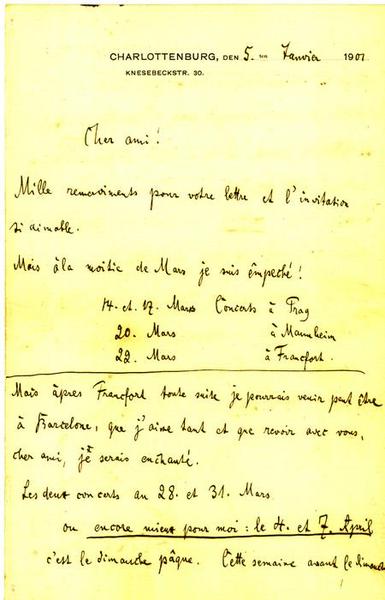 CHARLOTTENBURG, DEN 5. ten Janvier 1901
KNESEBECKSTR. 30.
Cher ami!
Mille remerciments pour votre lettre et l'invitation
si aimable.
Mais à la moitie de Mars je suis êmpeché!
14. et. 17. Mars Concerts à Prag
20. Mars à Mannheim
22. Mars à Francfort.
Mais àpres Francfort toute suite je pourrais venir peut être
à Barcelone, que j'aime tant et que revoir avec vous,
cher ami, je serais enchanté.
Les deux concerts au 28. et 31. Mars
ou encore mieux pour moi: le 4. et 7. April
c'est le dimanche pâque. Cette semaine avant le dimanche